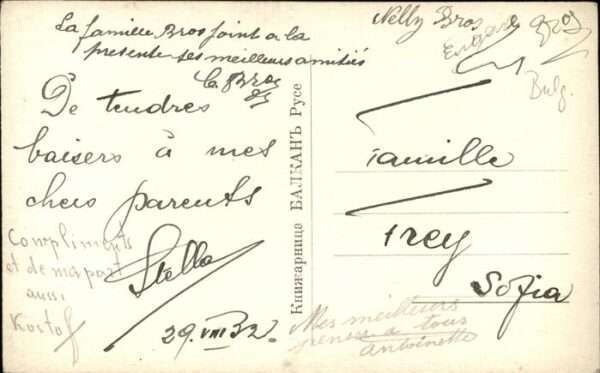 La famille Bros joint a la
presente ses meilleurs amitiés
C. Bros
De tendres
baisers à mes
chers parents
Stella
29.VIII 32
Compliments
et de ma part
aussi
Kostof
Книжарница БАЛКАНЪ Русе
Nelly Bros
Bulg.
Famille
Frey
Sofia
Mes meilleurs
pensees a tous
Antoinette